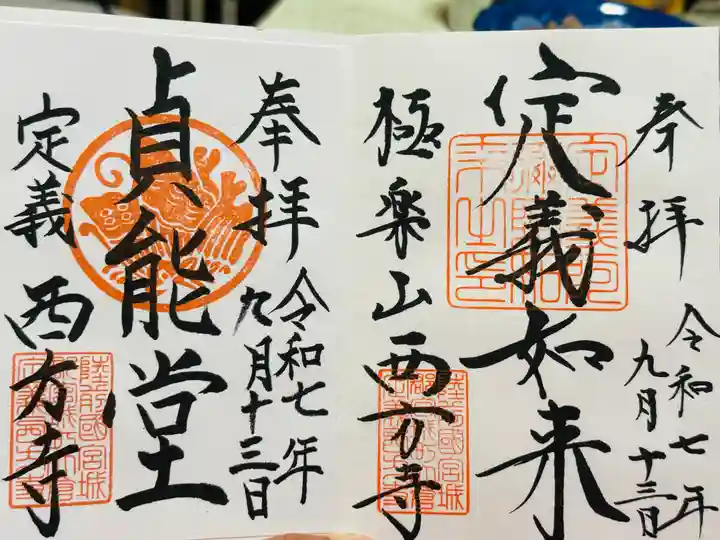 奉拝
令和七年
九月十三日
定義如来
極楽山
西方寺
奉拝
令和七年
九月十三日
貞能堂
定義
西方寺